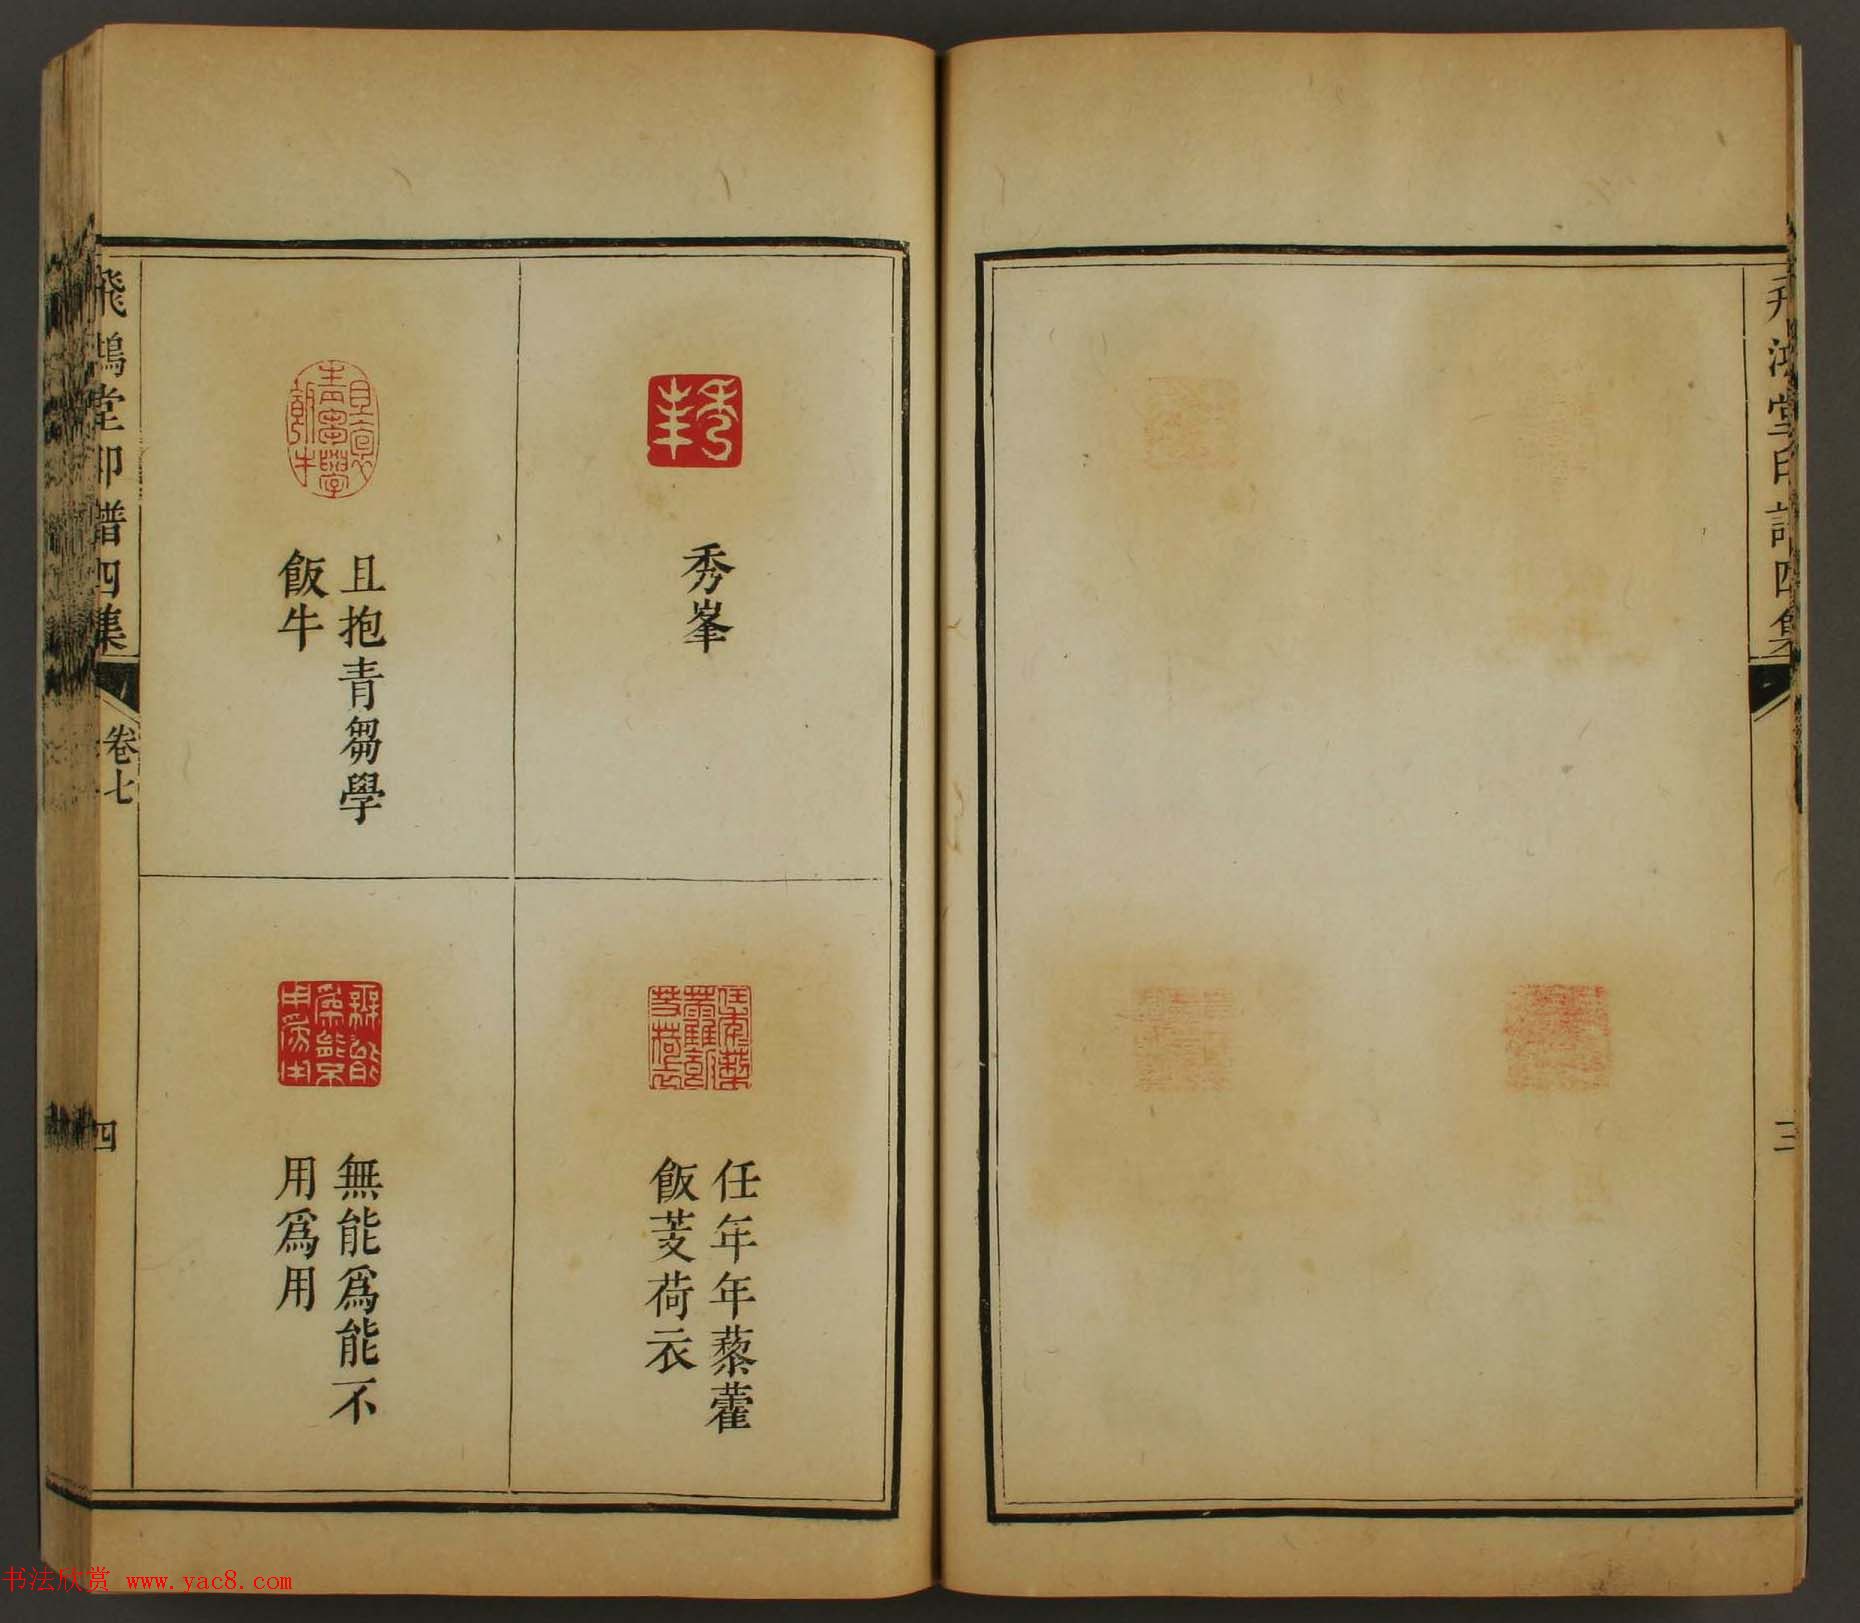 飛鴻堂印譜四集
三
秀峯
且抱青芻學
飯牛
任年年藜藿
飯芰荷衣
無能爲能不
用爲用
飛鴻堂印譜四集
卷七
四
书法欣赏 www.yac8.com